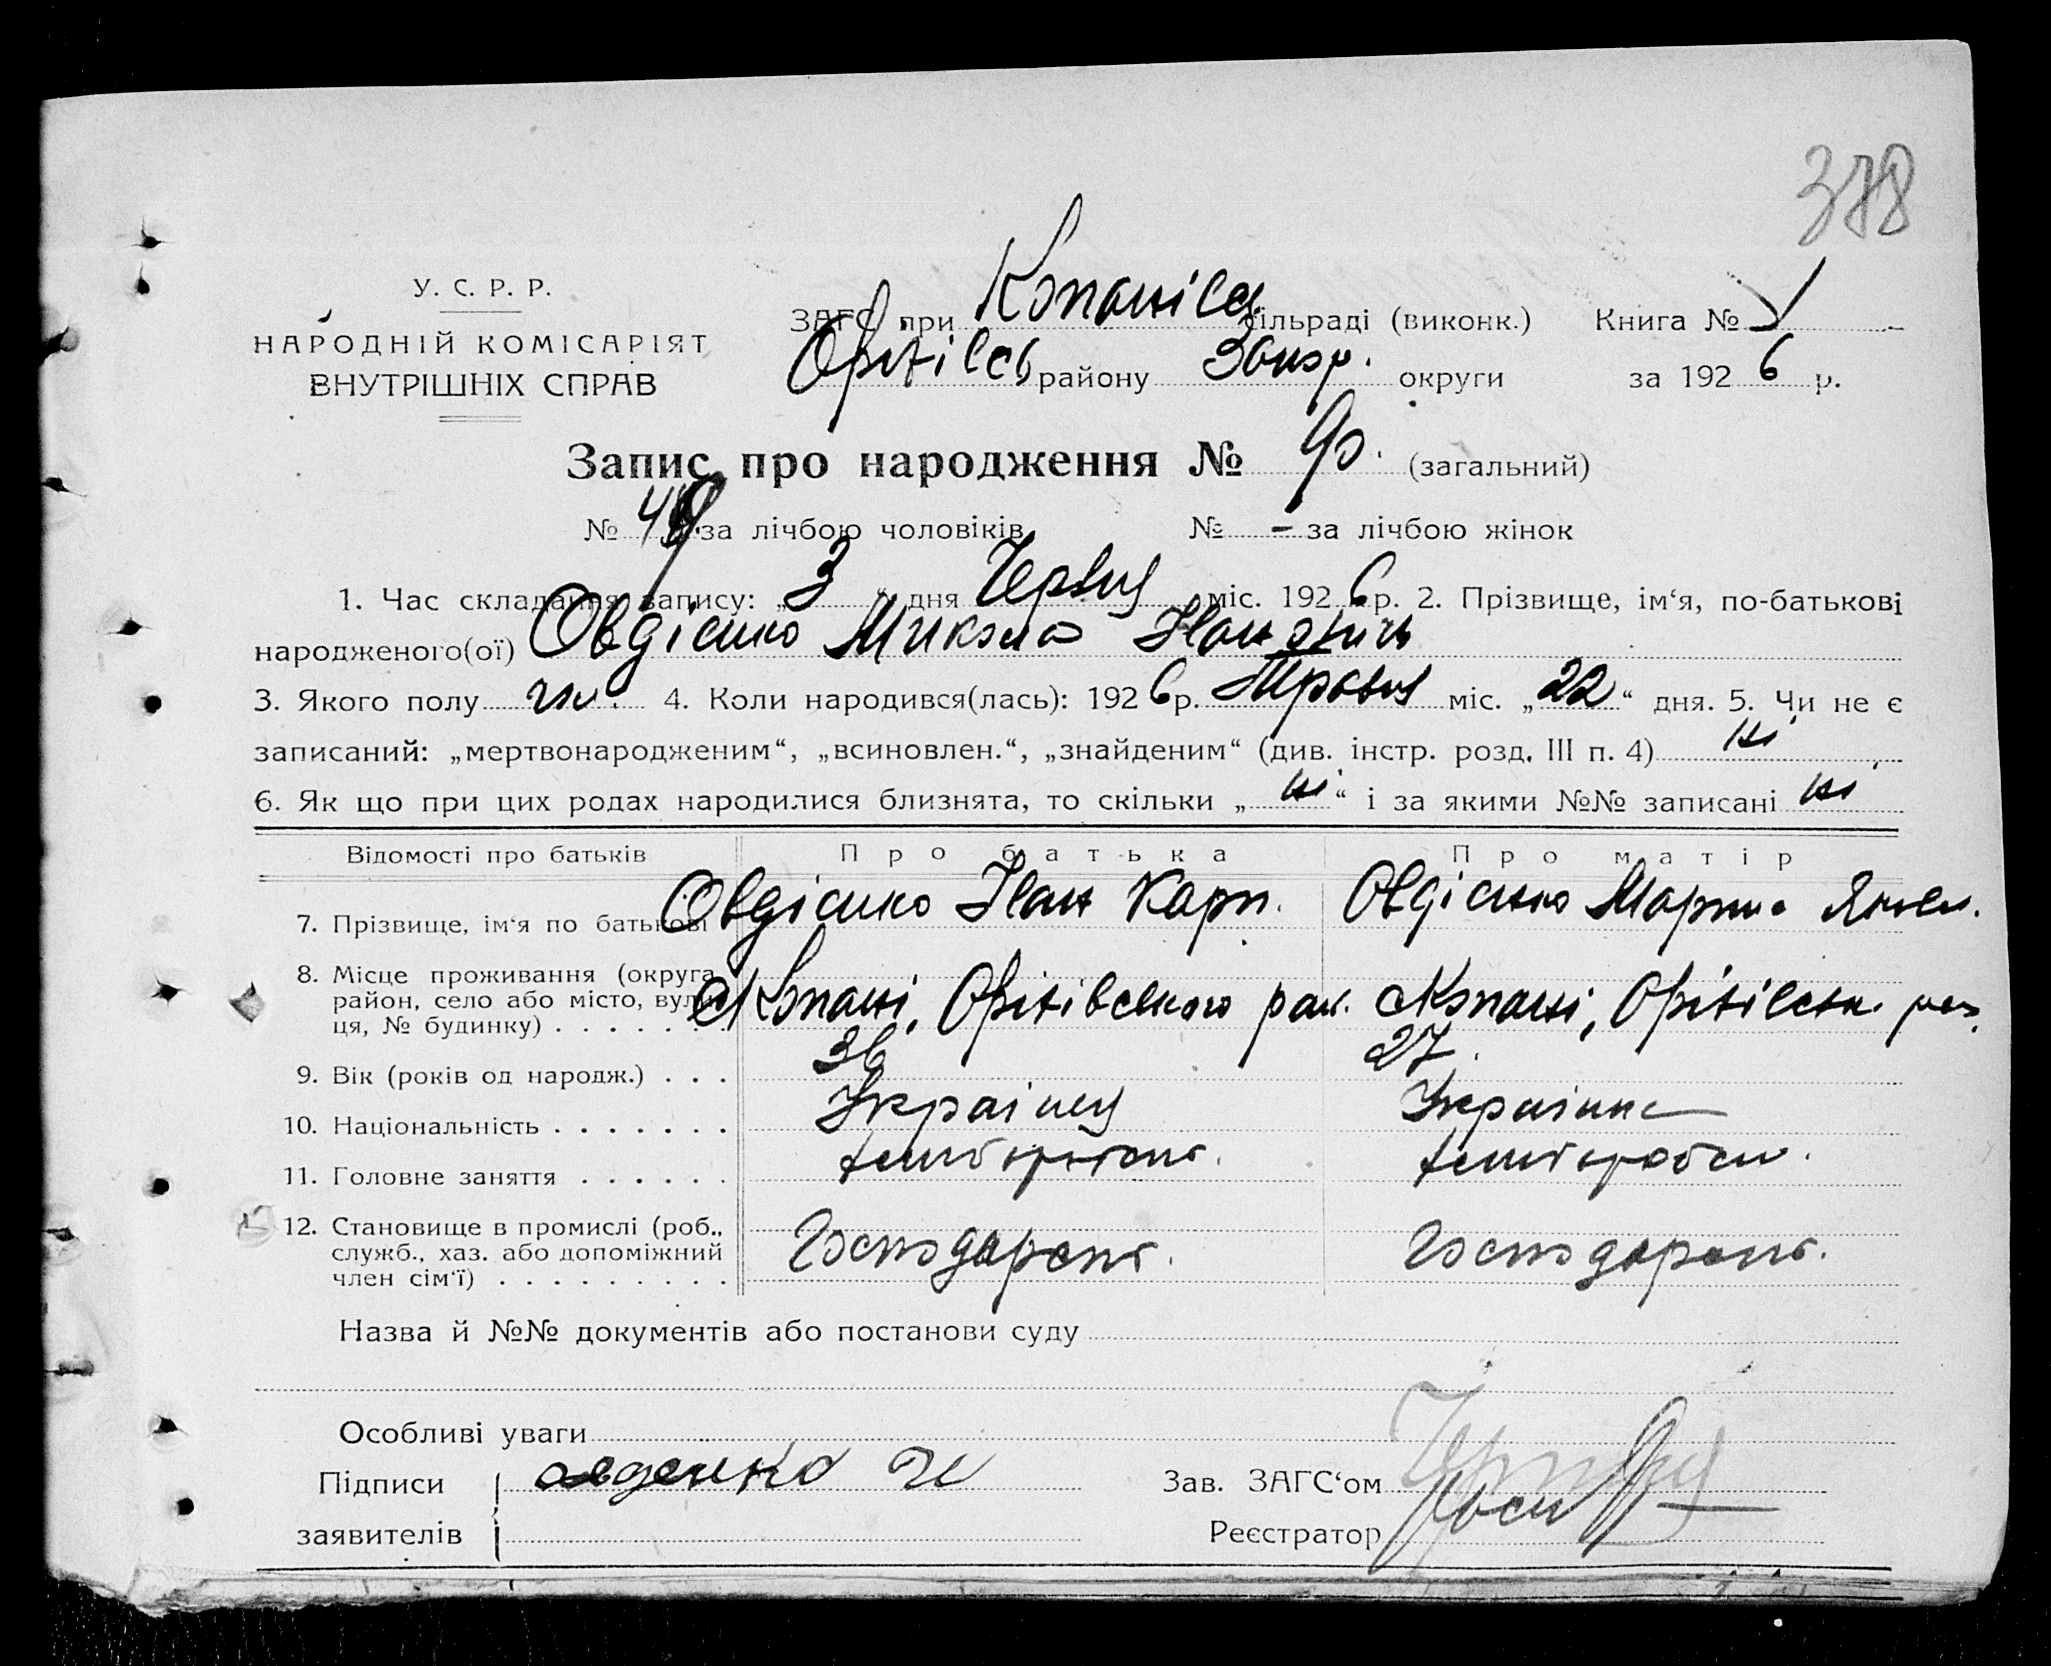 378
У. С. Р. Р.
НАРОДНІЙ КОМІСАРІЯТ
ВНУТРІШНІХ СПРАВ
ЗАГС при Копанівськ сільраді (виконк.) Книга №
Оріхівськ району Запор. округи за 1926 р.
Запис про народження № 90. (загальний)
№ 49 за лічбою чоловіків № - за лічбою жінок
1. Час складання запису: „3“ дня Червня міс. 1926 р. 2. Прізвище, ім‘я, по-батькові
народженого(ої) Овдієнко Микола Іванович
3. Якого полу чол. 4. Коли народився(лась): 1926 р. Травня міс. „22“ дня. 5. Чи не є
записаний: „мертвонародженим“, „всиновлен.“, „знайденим“ (див. інстр. розд. III п. 4) ні
6. Як що при цих родах народилися близнята, то скільки „ні“ і за якими №№ записані ні
Відомості про батьків Про батька Про матір
7. Прізвище, ім‘я по батькові Овдієнко Іван Карп. Овдієнко Марина
8. Місце проживання (округа, район, село або місто, вулиця, № будинку) с Копані, Оріхівського рай. с Копані, Оріхівськ. рай.
9. Вік (років од народж.) . . . 36 27
10. Національність . . . . . . . Українец Українка
11. Головне заняття . . . . . .
12. Становище в промислі (роб., служб., хаз. або допоміжний член сім‘ї) . . . . . . . . . .
Назва й №№ документів або постанови суду
Особливі уваги
Підписи авденко Зав. ЗАГС‘ом
заявителів Реєстратор